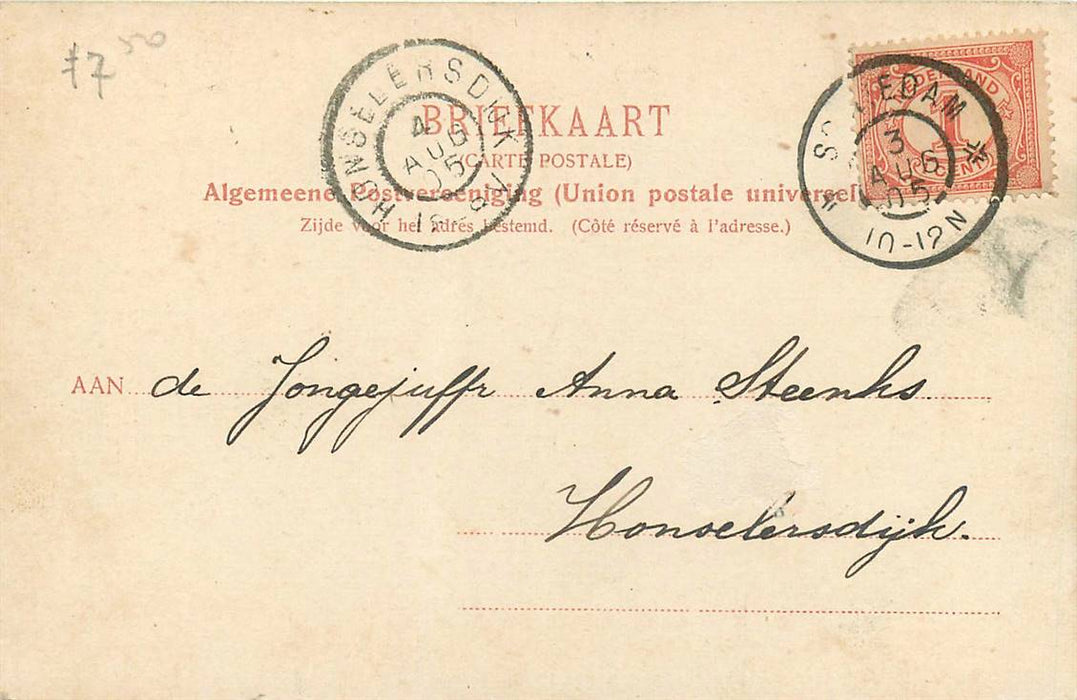 f7 50
HONSELERSDIJK
4
AUG
05
BRIEFKAART
(CARTE POSTALE)
Algemeene Postvereeniging (Union postale universel
Zijde voor het adres bestemd. (Côté réservé à l'adresse.)
NEDERLAND
1
CENT
3
AUG
05
10-12N
AAN de Jongejuffr Anna Steenks.
Honselersdijk.